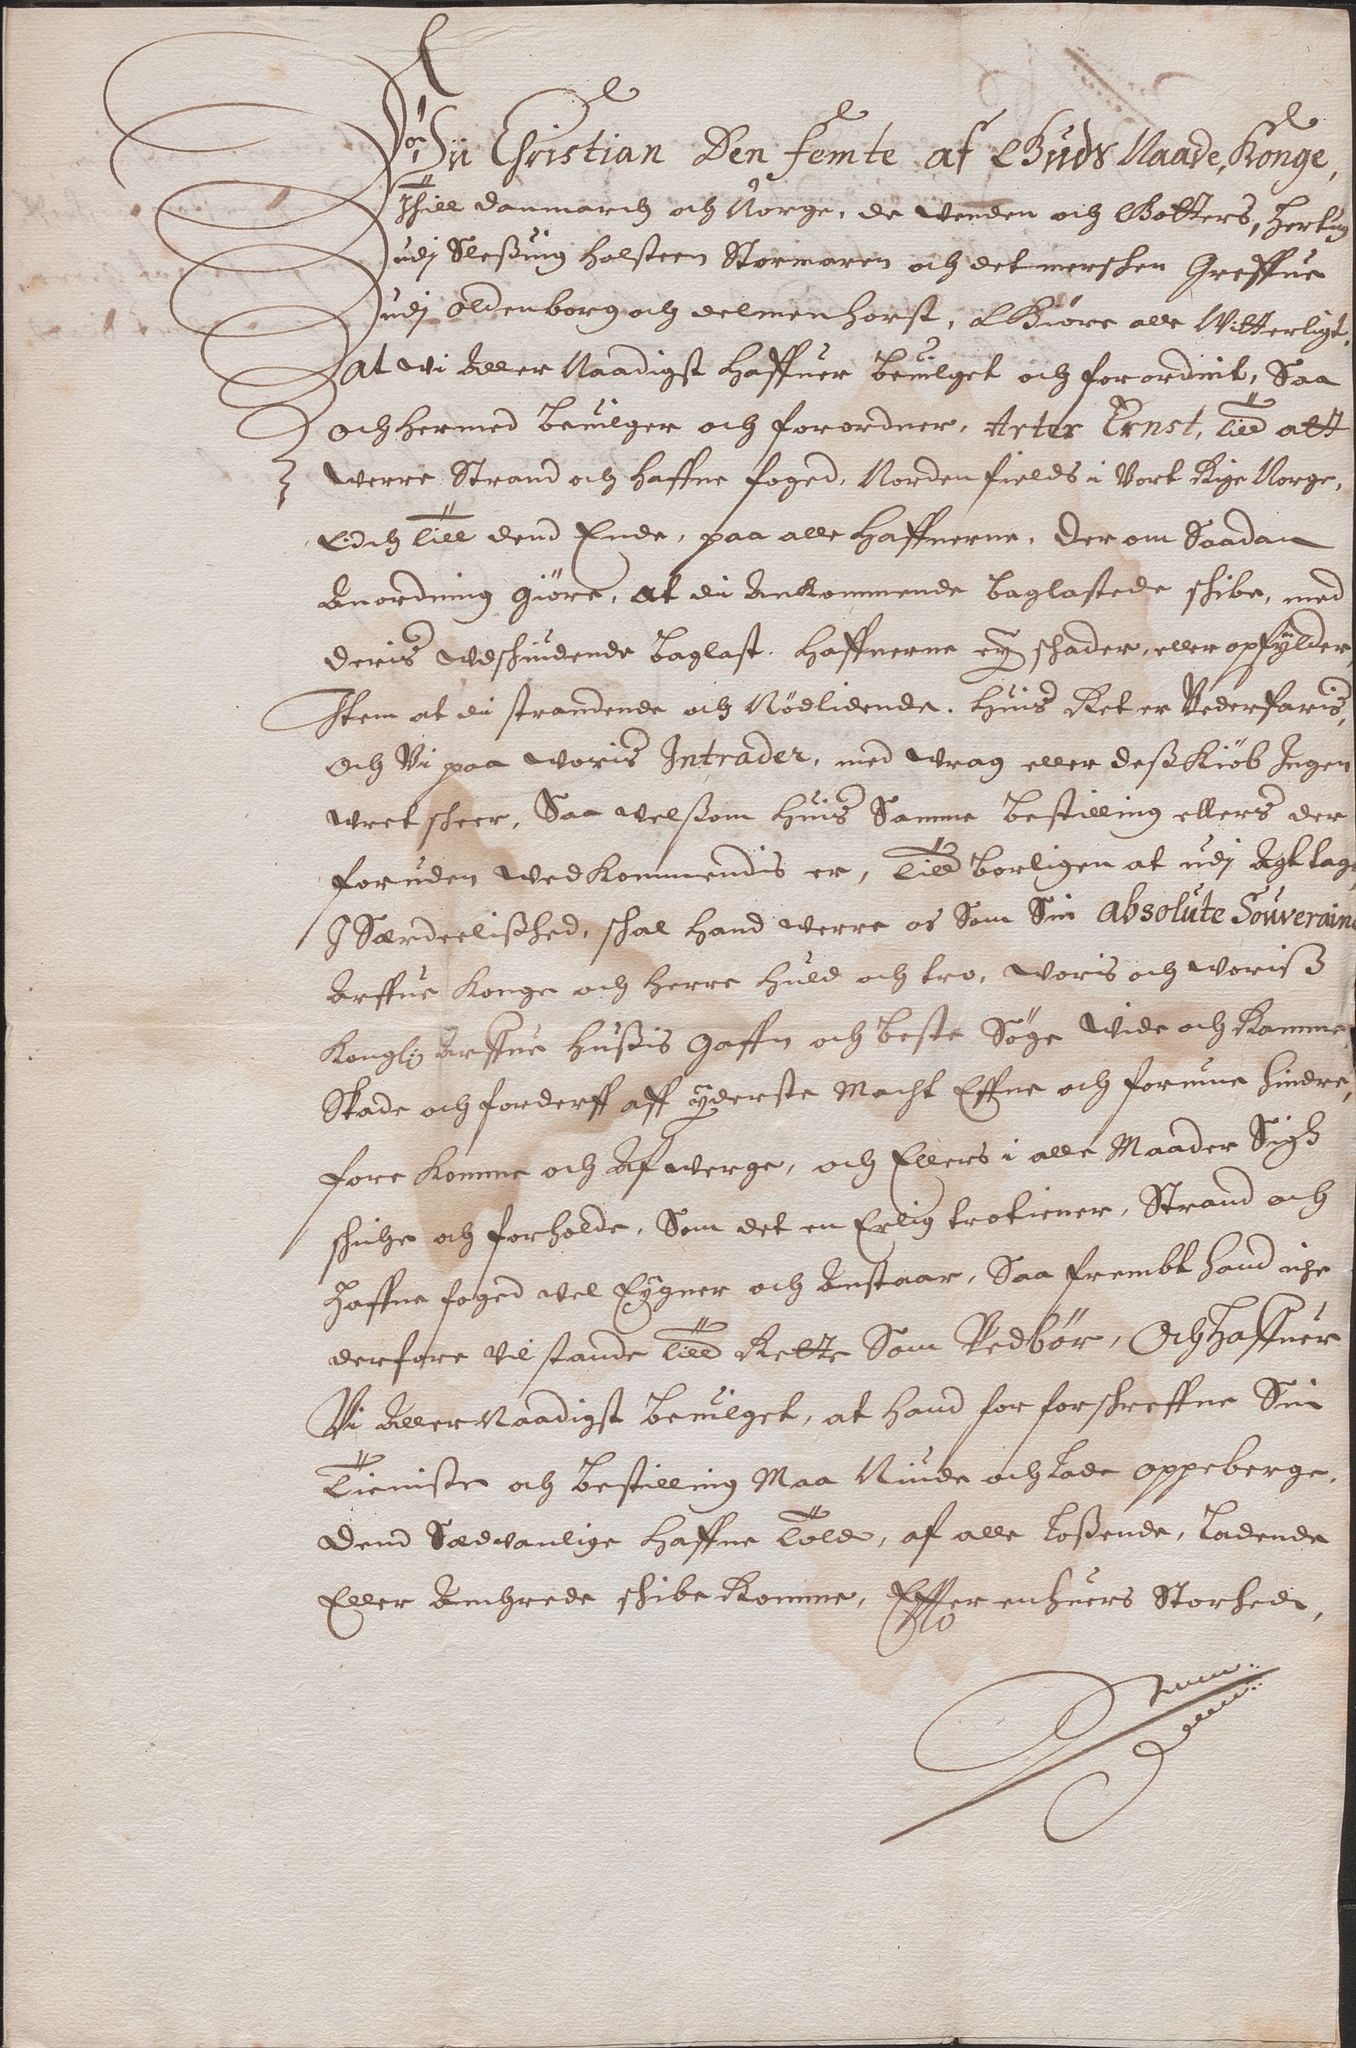 Wii Christian Den femte af Guds Naade, Konge,
Thill Danmarch och Norge, de Wenden och Gotters, Hertug
udj Sleßuig Holsteen Stormaren och detmerschen Greffue
udj Oldenborg och delmenhorst, Giöre alle Witterligt,
At wi Aller Naadigst haffuer beuilget och forordnit, Saa
och hermed beuilger och forordner, Ernst, Till att
werre Strand och haffne foged, Nordenfields i Vort Rige Norge,
Och Till dend Ende, paa alle haffnerne, der om Saadan
Anordning giöre, at di Ankommende baglastede schibe, med
deris udschiudende baglast, haffnerne ey schader, eller opfylder,
Item at di strandende och Nödlidende, huis Ret er Vederfaris,
Och Vi paa woris Intrader, med wrag eller deß Kiöb Ingen
wret scheer, Saa welßom huis Samme bestilling ellers der
foruden wedkommendis er, Till börligen at udj Agt tage,
I Særdeelißhed, schal hand werre os Som Sin absolute Souveraine
Arffue Konge och Herre huld och tro, woris och woriß
Konglig Arffue Hußis gaffn och beste Söge Wide och Ramme,
Skade och forderff aff yderste Macht Effne och formue hindre,
fore komme och Afwerge, och Ellers i alle Maader Sigh
schiche och forholde, Som det en Erlig trotiener, Strand och
Haffne foged vel Eygner och Anstaar, Saa frembt hand iche
derfore vil stande Till Rette Som Vedbör, Och Haffuer
Vi Aller Naadigst beuilget, at hand for forschreffne Sin
Tieniste och bestilling Maa Niude och Lade oppeberge,
dend Sædvanlige Haffne Told, af alle Loßende, Ladende
Eller Anchrede schibe Komme, Effter enhuers Storhed,